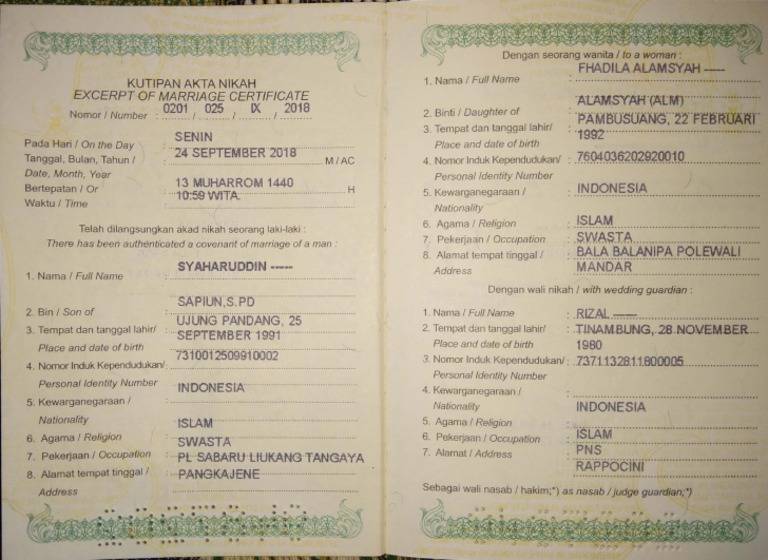 KUTIPAN AKTA NIKAH
EXCERPT OF MARRIAGE CERTIFICATE
Nomor / Number : 0201 / 025 / IX / 2018
Pada Hari / On the Day : SENIN
Tanggal, Bulan, Tahun / : 24 SEPTEMBER 2018 M / AC
Date, Month, Year
Bertepatan / Or : 13 MUHARROM 1440 H
Waktu / Time : 10:59 WITA.
Telah dilangsungkan akad nikah seorang laki-laki :
There has been authenticated a covenant of marriage of a man :
1. Nama / Full Name : SYAHARUDDIN -----
2. Bin / Son of : SAPIUN,S.PD
3. Tempat dan tanggal lahir/ : UJUNG PANDANG, 25
Place and date of birth SEPTEMBER 1991
4. Nomor Induk Kependudukan/ : 7310012509910002
Personal Identity Number
5. Kewarganegaraan / : INDONESIA
Nationality
6. Agama / Religion : ISLAM
7. Pekerjaan / Occupation : SWASTA
8. Alamat tempat tinggal / : PL SABARU LIUKANG TANGAYA
Address PANGKAJENE
Dengan seorang wanita / to a woman :
1. Nama / Full Name : FHADILA ALAMSYAH -----
2. Binti / Daughter of : ALAMSYAH (ALM)
3. Tempat dan tanggal lahir/ : PAMBUSUANG, 22 FEBRUARI
Place and date of birth 1992
4. Nomor Induk Kependudukan/ : 7604036202920010
Personal Identity Number
5. Kewarganegaraan / : INDONESIA
Nationality
6. Agama / Religion : ISLAM
7. Pekerjaan / Occupation : SWASTA
8. Alamat tempat tinggal / : BALA BALANIPA POLEWALI
Address MANDAR
Dengan wali nikah / with wedding guardian :
1. Nama / Full Name : RIZAL -----
2. Tempat dan tanggal lahir/ : TINAMBUNG, 28 NOVEMBER
Place and date of birth 1980
3. Nomor Induk Kependudukan/ : 7371132811800005
Personal Identity Number
4. Kewarganegaraan / :
Nationality INDONESIA
5. Agama / Religion :
6. Pekerjaan / Occupation : ISLAM
7. Alamat / Address : PNS
RAPPOCINI
Sebagai wali nasab / hakim;*) as nasab / judge guardian;*)